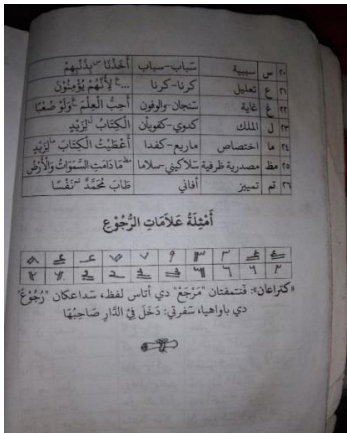 ٢٠ س سببية سباب-سباب أَخَذْنَا س بِذَنْبِهِمْ
٢١ ع تعليل كرنا-كرنا ... ع لِأَنَّهُمْ يُؤْمِنُوْنَ
٢٢ غ غاية سنجان-والوفون أُحِبُّ الْعِلْمَ غ وَلَوْ صَعْبًا
٢٣ ل الملك كدوي- الْكِتَابُ ل لِزَيْدٍ
٢٤ ما اختصاص ماريع-كفدا أَعْطَيْتُ الْكِتَابَ ما لِزَيْدٍ
٢٥ مظ مصدرية ظرفية سلاكيني-سلاما مظ مَا دَامَتِ السَّمَوَاتُ وَالْأَرْضُ
٢٦ تم تمييز أفاني طَابَ مُحَمَّدٌ تم نَفْسًا
أَمْثِلَةُ عَلَامَاتِ الرُّجُوْعِ
«كتراعان»: فنتمفتان "مَرْجَعْ" دي أتاس لفظ، سداعكان "رُجُوْعْ"
دي باواهيا، سفرتي: دَخَلَ فِي الدَّارِ صَاحِبُهَا